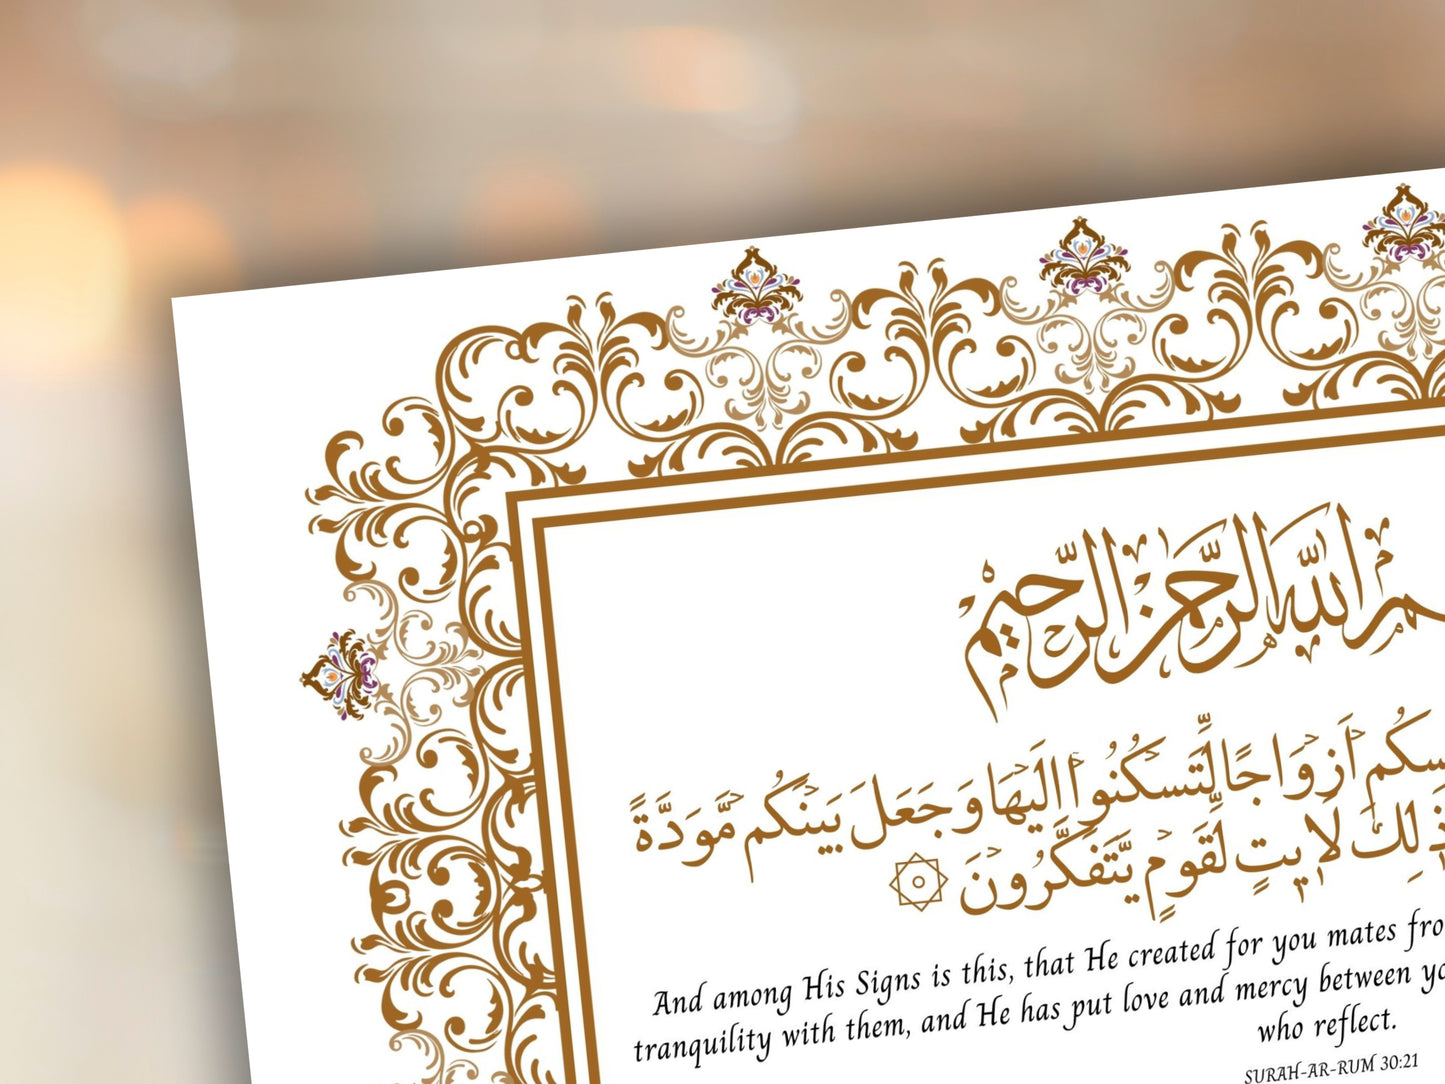 ـم الله الرحمن الرحيم
ـسكم أزواجًا لِّتسكنوا إليها وجعل بينكم مَّودَّةً
ذلك لآيتٍ لِّقومٍ يَّتفكَّرون ۞
And among His Signs is this, that He created for you mates
tranquility with them, and He has put love and mercy between
who reflect.
SURAH-AR-RUM 30:21